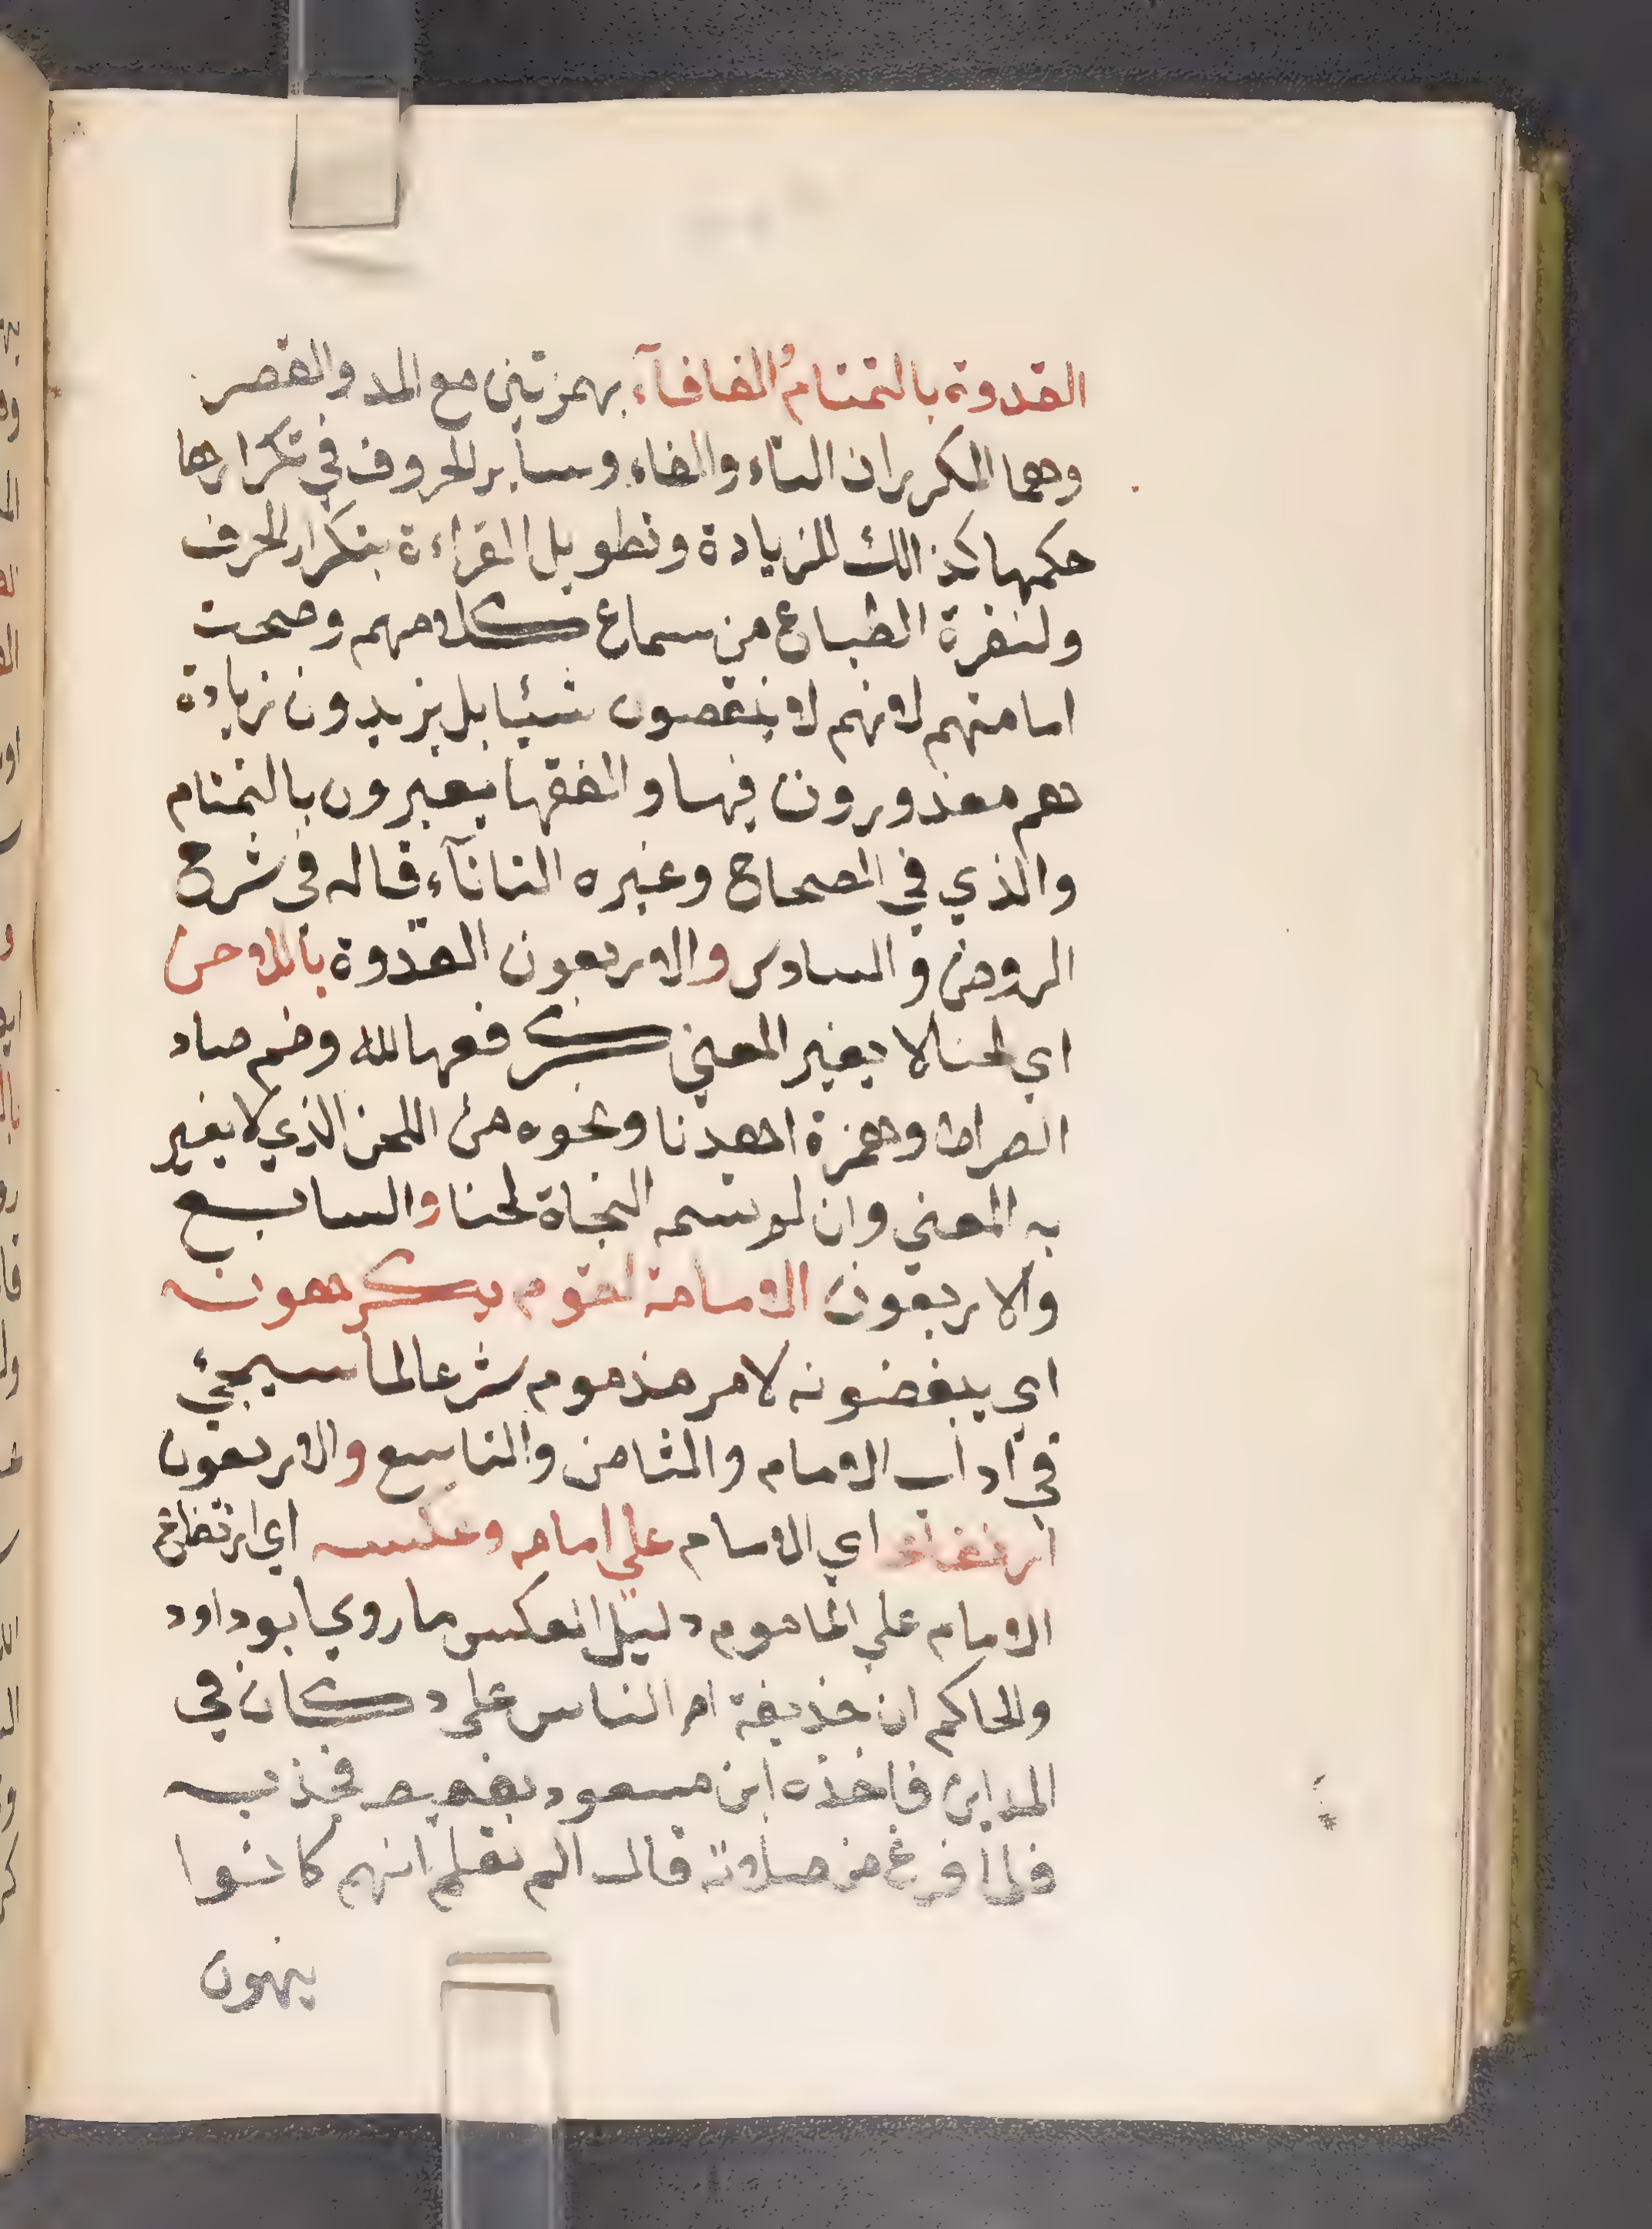 القدوة بالتمتام والفافآء بهمزتين مع المد والقصر
وهما المكرران التاء والفاء وساير الحروف في تكرارها
حكمها كذالك للزيادة وتطويل القراءة بتكرار الحرف
ولنفرة الطباع من سماع كلامهم وصحت
امامتهم لانهم لا ينقصون شيئا بل يزيدون زيادة
هم معذورون فيها والفقها يعبرون بالتمتام
والذي في الصحاح وغيره التاتآء قاله في شرح
الروض والسادس والاربعون القدوة بالاحن
اي لحنا لا يغير المعني كرفعها لله وضم صاد
الصراط وهمزة اهدنا ونحوه من اللحن الذي لا يغير
به المعني وان لم تسمه النحاة لحنا والسابع
والاربعون الامامة لقوم يكرهونه
اي يبغضونه لامر مذموم شرعا لما سيجئ
في اداب الامام والثامن والتاسع والاربعون
ارتفاعه اي الامام علي امامه وعكسه اي ارتفاع
الامام علي الماموم دليل العكس ما روي ابو داود
والحاكم ان حذيفة ام الناس على دكان في
المداين فاخذه ابن مسعود بقميصه فجذبه
فلما فرغ من صلاته قال الم تعلم انهم كانوا
ينهون